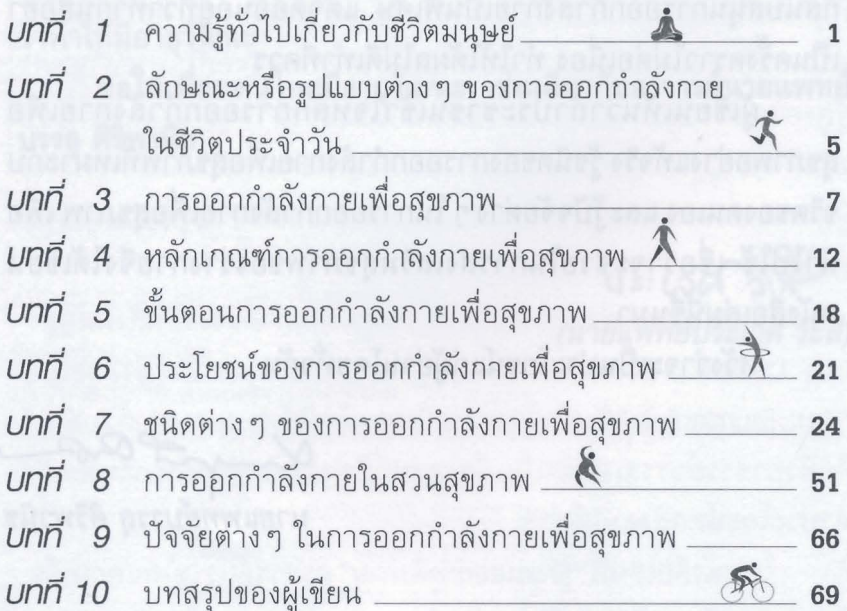 บทที่ 1 ความรู้ทั่วไปเกี่ยวกับชีวิตมนุษย์ 1
บทที่ 2 ลักษณะหรือรูปแบบต่างๆ ของการออกกำลังกาย
ในชีวิตประจำวัน 5
บทที่ 3 การออกกำลังกายเพื่อสุขภาพ 7
บทที่ 4 หลักเกณฑ์การออกกำลังกายเพื่อสุขภาพ 12
บทที่ 5 ขั้นตอนการออกกำลังกายเพื่อสุขภาพ 18
บทที่ 6 ประโยชน์ของการออกกำลังกายเพื่อสุขภาพ 21
บทที่ 7 ชนิดต่างๆ ของการออกกำลังกายเพื่อสุขภาพ 24
บทที่ 8 การออกกำลังกายในสวนสุขภาพ 51
บทที่ 9 ปัจจัยต่างๆ ในการออกกำลังกายเพื่อสุขภาพ 66
บทที่ 10 บทสรุปของผู้เขียน 69